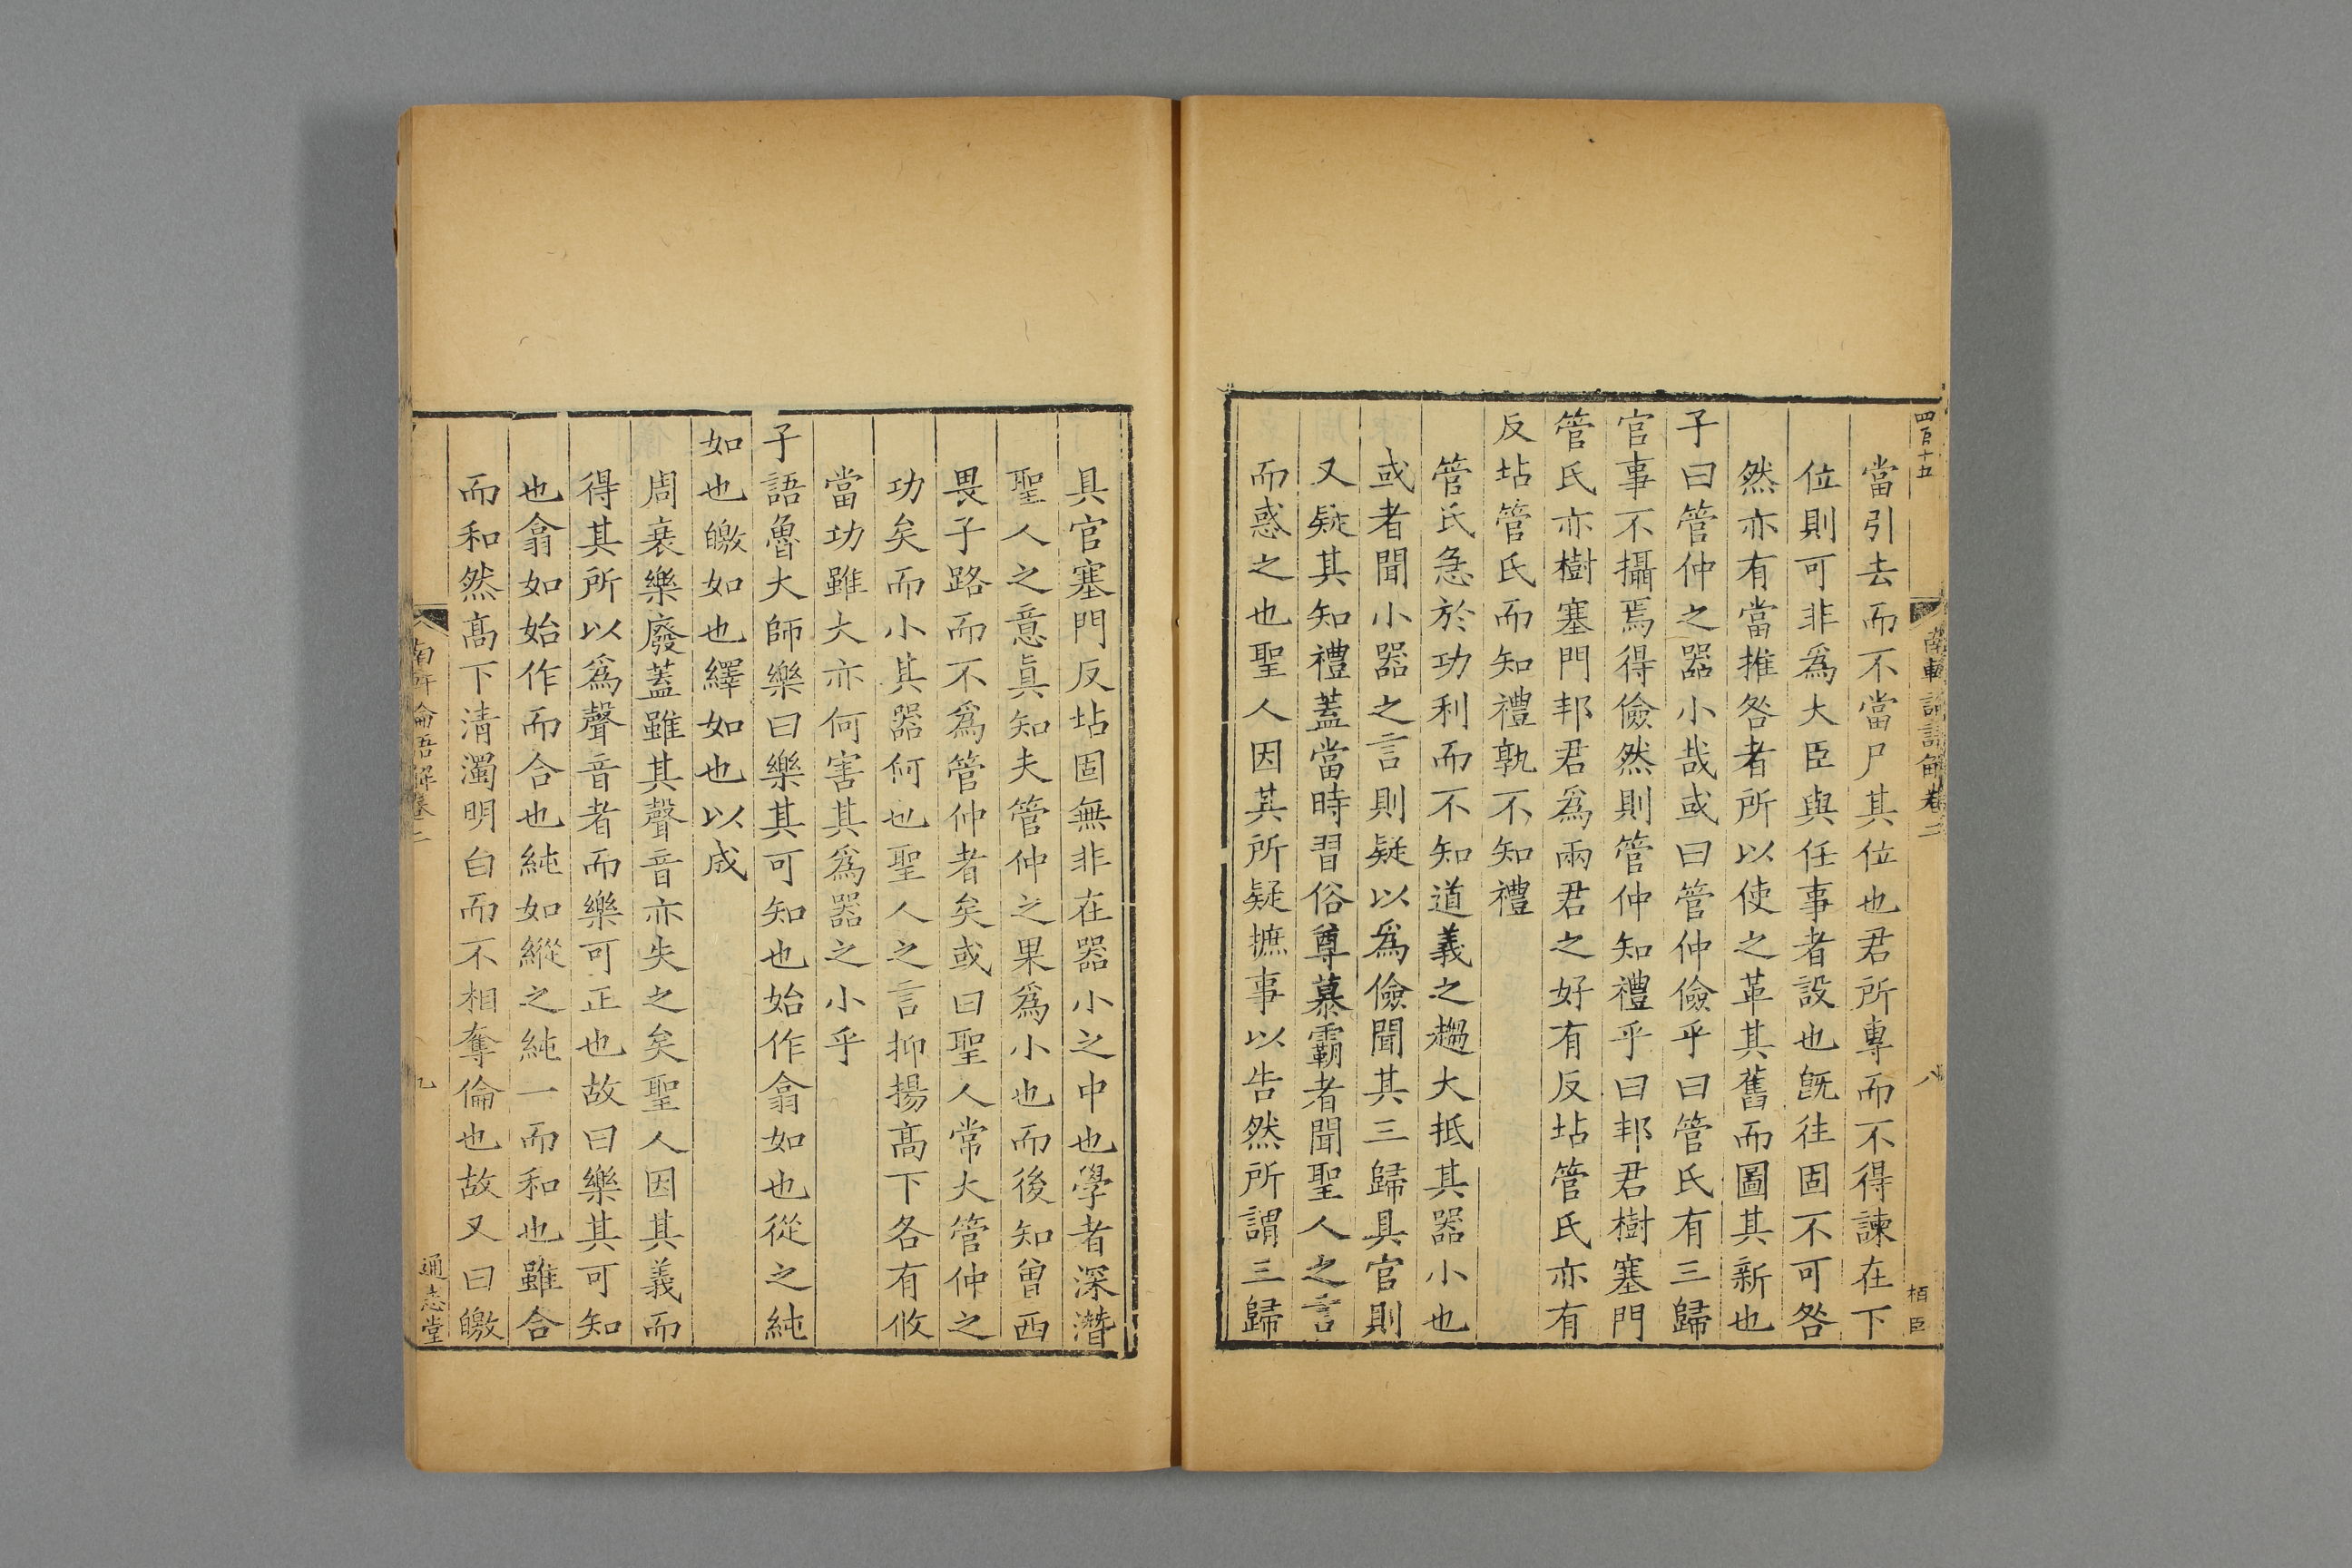 四百十五
南軒論語解卷二
八
栢臣
當引去而不當尸其位也君所專而不得諫在下
位則可非爲大臣與任事者設也旣往固不可咎
然亦有當推咎者所以使之革其舊而圖其新也
子曰管仲之器小哉或曰管仲儉乎曰管氏有三歸
官事不攝焉得儉然則管仲知禮乎曰邦君樹塞門
管氏亦樹塞門邦君爲兩君之好有反坫管氏亦有
反坫管氏而知禮孰不知禮
管氏急於功利而不知道義之趨大抵其器小也
或者聞小器之言則疑以爲儉聞其三歸具官則
又疑其知禮蓋當時習俗尊慕霸者聞聖人之言
而惑之也聖人因其所疑摭事以告然所謂三歸
具官塞門反坫固無非在器小之中也學者深潛
聖人之意眞知夫管仲之果爲小也而後知曾西
畏子路而不爲管仲者矣或曰聖人常大管仲之
功矣而小其器何也聖人之言抑揚高下各有攸
當功雖大亦何害其爲器之小乎
子語魯大師樂曰樂其可知也始作翕如也從之純
如也皦如也繹如也以成
周衰樂廢蓋雖其聲音亦失之矣聖人因其義而
得其所以爲聲音者而樂可正也故曰樂其可知
也翕如始作而合也純如縱之純一而和也雖合
而和然高下清濁明白而不相奪倫也故又曰皦
南軒論語解卷二
九
通志堂